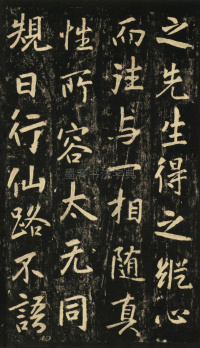 之先生得之縱心
而往与一相随真
性所容太无同
規日行仙路不語